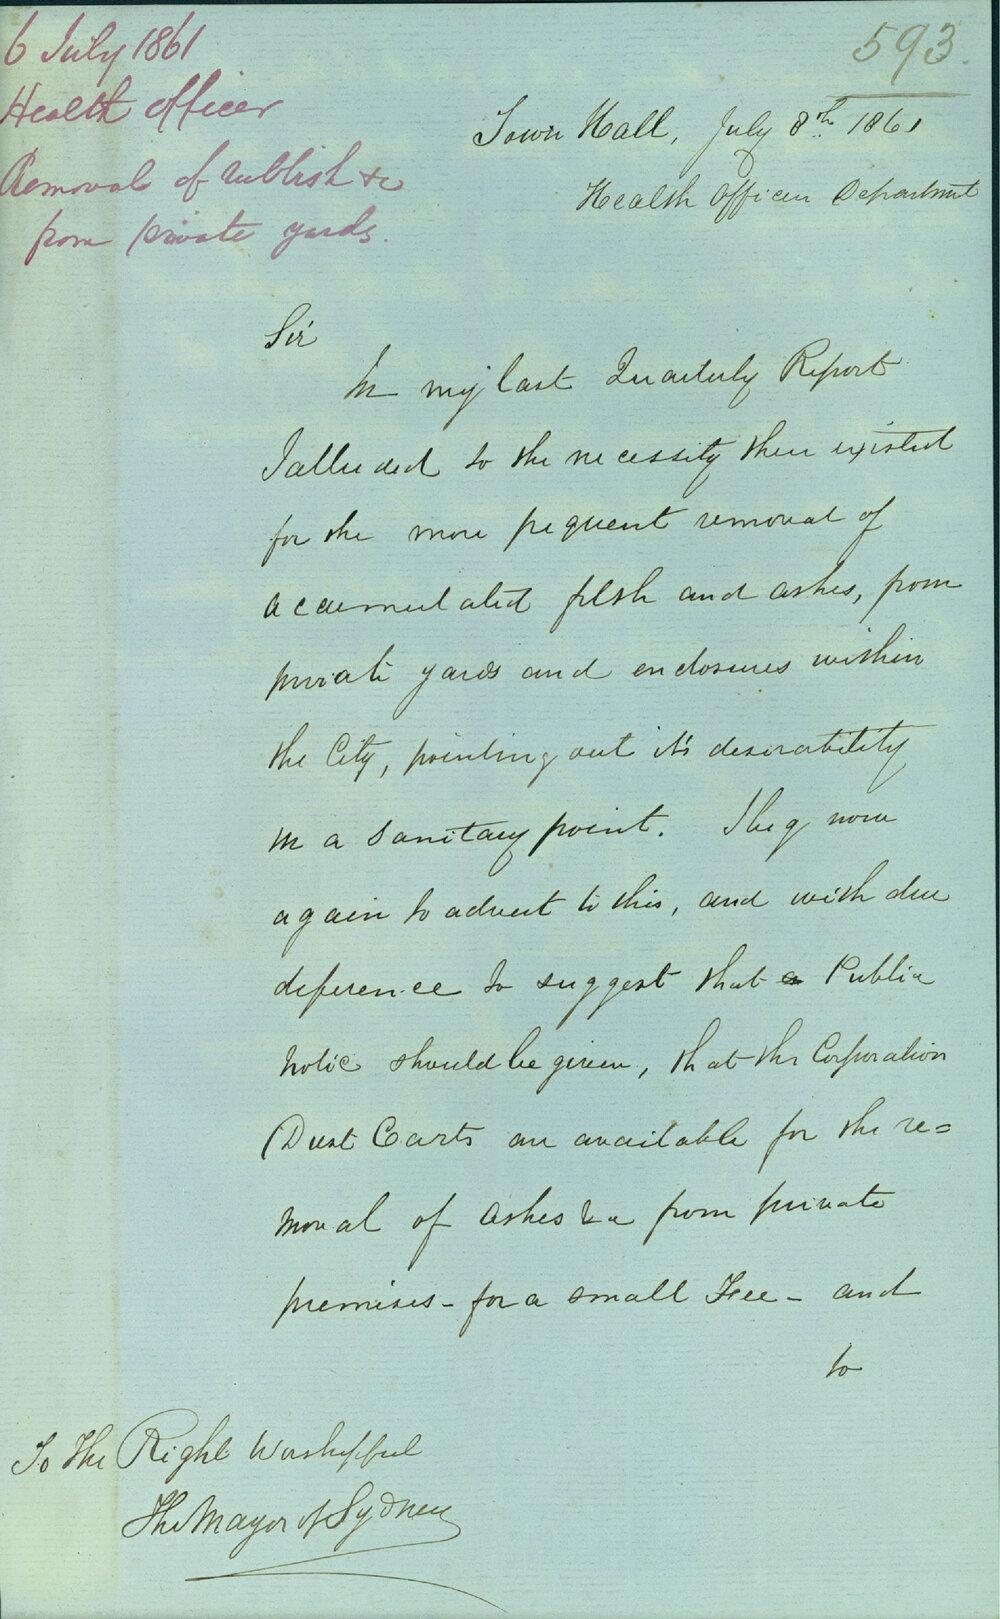 6 July 1861
Health Officer
Removal of rubbish &c
from private yards.
593.
Town Hall, July 8th 1861
Health Officers Department
Sir
In my last Quarterly Report
I alluded to the necessity then existed
for the more frequent removal of
accumulated filth and ashes, from
private yards and enclosures within
the City, pointing out it's desirability
in a sanitary point. I beg now
again to advert to this, and with due
deference to suggest that a Public
Notice should be given, that the Corporation
Dust Carts are available for the re=
moval of ashes &c from private
premises - for a small Fee - and
to
To The Right Worshipful
The Mayor of Sydney